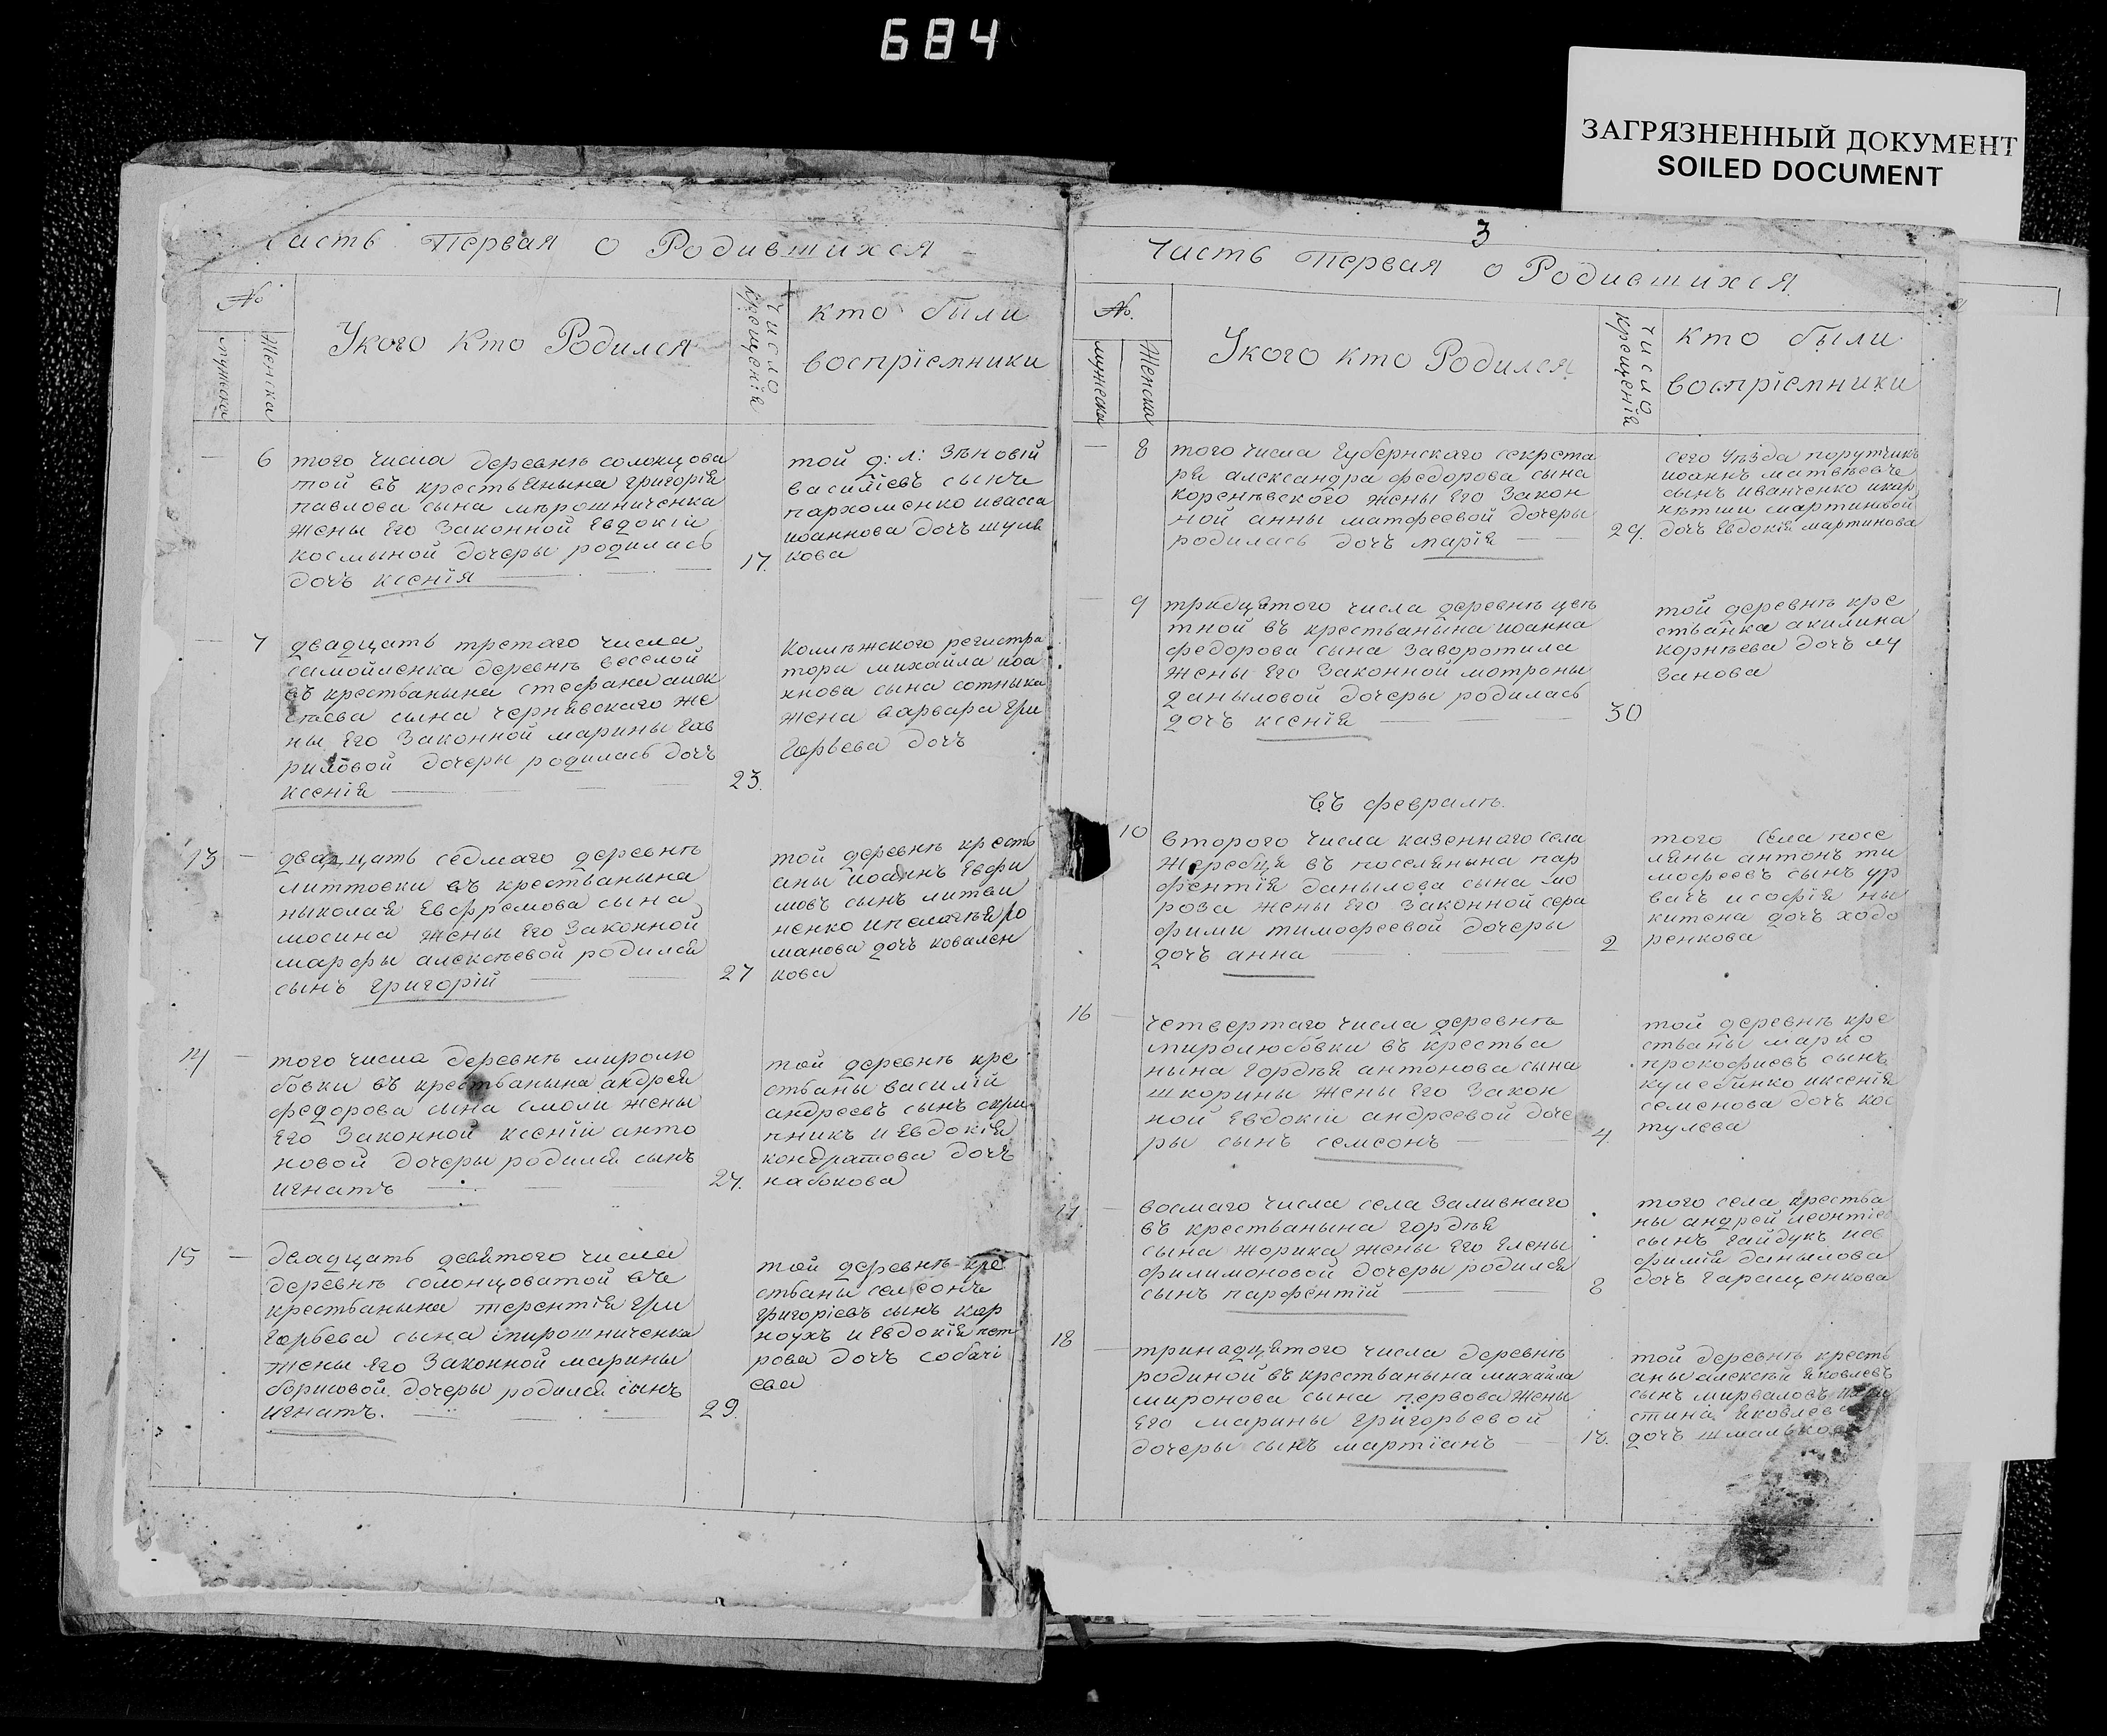 684
ЗАГРЯЗНЕННЫЙ ДОКУМЕНТ
SOILED DOCUMENT
часть Первая о Родившихся
№
мужска
Женска
Укого Кто Родился
число крещенія
кто были
воспріемники
6
того числа деревнѣ солонцова
той въ крестьянына григорія
павлова сына мѣрошниченка
жены Его Законной Евдокіи
космыной дочеры родилась
дочъ ксенія
17.
той д: л: Зѣновій
василіевъ сынъ
пархоменко ивасса
иоаннова дочъ шуль
кова
7
двадцать третаго числа
самойленка деревнѣ веселой
въ крестьанына стефана алек
сѣева сына чернявскаго же
ны Его Законной марины гав
риловой дочеры родилась дочъ
ксенія
23.
Колѣжского регистра
тора михайла иоа
ннова сына сотныка
жена варвара гри
горьева дочъ
13
двадцать седмаго деревнѣ
литтовки въ крестьанына
ныколая Евфремова сына
мосина жены Его Законной
марфы алексѣевой родился
сынъ григорій
27
той деревнѣ кресть
аны иоаннъ Евфи
мовъ сынъ литви
ненко ипелагѣя ро
манова дочъ ковален
кова
14
того числа деревнѣ миролю
бовки въ крестьанына андрея
федорова сына смоли жены
Его Законной ксеніи анто
новой дочеры родился сынъ
игнатъ
27.
той деревнѣ кре
стьаны василій
андреевъ сынъ скри
пникъ и Евдокія
кондратова дочъ
набокова
15
двадцать девятого числа
деревнѣ солонцоватой въ
крестьанына терентія гри
горьева сына мирошниченка
жены Его Законной марины
борисовой дочеры родился сынъ
игнатъ.
29.
той деревнѣ кре
стьаны семсонъ
григоріевъ сынъ кор
ноухъ и Евдокія пет
рова дочъ собачі
ева
3
часть первая о Родившихся
№.
мужеска
Женска
Укого кто Родился
число крещенія
кто были
воспріемники
8
того числа губернскаго секрета
ря александра федорова сына
коренѣвского жены Его Закон
ной анны матфеевой дочеры
родилась дочъ марія
29.
сего уѣзда порутчикъ
иоаннъ матвѣевъ
сынъ иванченко
мартиновой
дочъ Евдокія мартинова
9
тридцятого числа деревнѣ цвѣ
тной въ крестьанына иоанна
федорова сына Заворотила
жены Его Законной мотроны
даныловой дочеры родилась
дочъ ксенія
30
той деревнѣ кре
стьанка акилина
корнѣева дочъ лу
Занова
въ февралѣ.
10
второго числа казенного села
жеребця въ поселянына пар
фентія данылова сына мо
роза жены Его Законной сера
фими тимофеевой дочеры
дочъ анна
2
того села посе
ляны антонъ ти
мофеевъ сынъ ур
вачъ исофія ны
китена дочъ ходо
ренкова
16
четвертаго числа деревнѣ
миролюбовки въ крестьа
нына гордѣя антонова сына
шкорины жены Его Закон
ной Евдокіи андреевой доче
ры сынъ семсонъ
4
той деревнѣ кре
стьаны марко
прокофиевъ сынъ
кулебинко иксенія
семенова дочъ кос
тулева
17
восмаго числа села Заливнаго
въ крестьанына гордѣя
сына жорика жены Его Елены
филимоновой дочеры родился
сынъ парфентій
8
того села крестьа
ны андрей леонтіе
сынъ гайдукъ иев
филія данылова
дочъ гаращенкова
18
тринадцятого числа деревнѣ
родиной въ крестьанына михайла
миронова сына первова жены
Его марины григорьевой
дочеры сынъ мартіанъ
13.
той деревнѣ кресть
аны алексѣй яковлевъ
сынъ мирваловъ
стина яковлева
дочъ шмалько